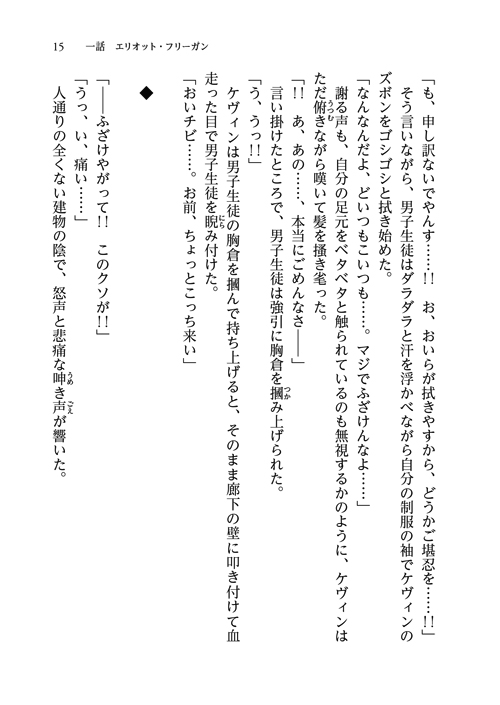 15　一話　エリオット・フリーガン
「も、申し訳ないでやんす……!!　お、おいらが拭きやすから、どうかご堪忍を……!!」
　そう言いながら、男子生徒はダラダラと汗を浮かべながら自分の制服の袖でケヴィンの
ズボンをゴシゴシと拭き始めた。
「なんなんだよ、どいつもこいつも……。マジでふざけんなよ……」
　謝る声も、自分の足元をベタベタと触られているのも無視するかのように、ケヴィンは
ただ俯きながら嘆いて髪を掻き毟った。
「!!　あ、あの……、本当にごめんなさ――」
　言い掛けたところで、男子生徒は強引に胸倉を摑み上げられた。
「う、うっ!!」
　ケヴィンは男子生徒の胸倉を摑んで持ち上げると、そのまま廊下の壁に叩き付けて血
走った目で男子生徒を睨み付けた。
「おいチビ……。お前、ちょっとこっち来い」
◆
「――ふざけやがって!!　このクソが!!」
「うっ、い、痛い……」
　人通りの全くない建物の陰で、怒声と悲痛な呻き声が響いた。